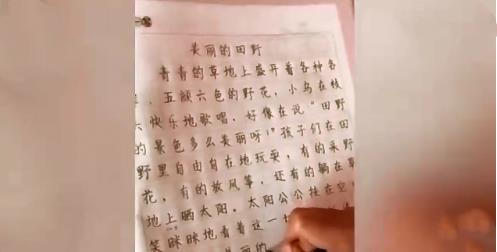 美丽的田野
青青的草地上盛开着各种各
，五颜六色的野花，小鸟在枝
快乐地歌唱，好像在说“田野
的景色多么美丽呀！”孩子们在田
野里自由自在地玩耍，有的采野
花，有的放风筝，还有的躺在
地上晒太阳。太阳公公挂在空
笑眯眯地看着这一
丽的